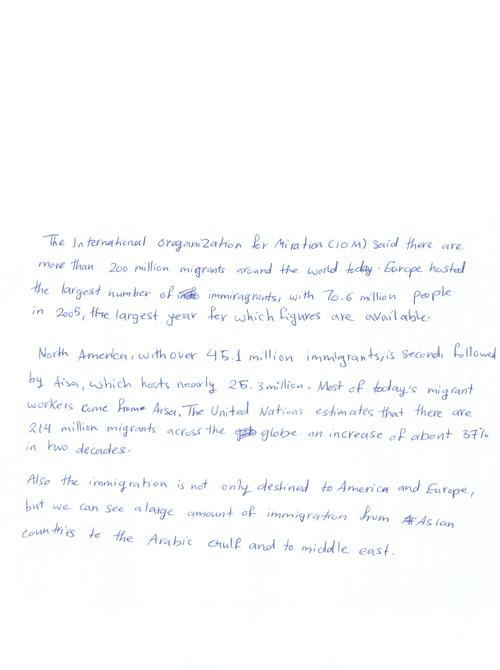 The International Oraganization for Miration (IOM) said there are
more than 200 million migrants around the world today. Europe hosted
the largest number of immiragrants, with 70.6 million people
in 2005, the largest year for which figures are available.
North America, with over 45.1 million immigrants, is second, followed
by Aisa, which hosts nearly 25.3 million. Most of today's migrant
workers come frome Aisa. The United Nations estimates that there are
214 million migrants across the globe an increase of about 37%
in two decades.
Also the immigration is not only destined to America and Europe,
but we can see a large amount of immigration from Asian
countries to the Arabic Gulf and to middle east.